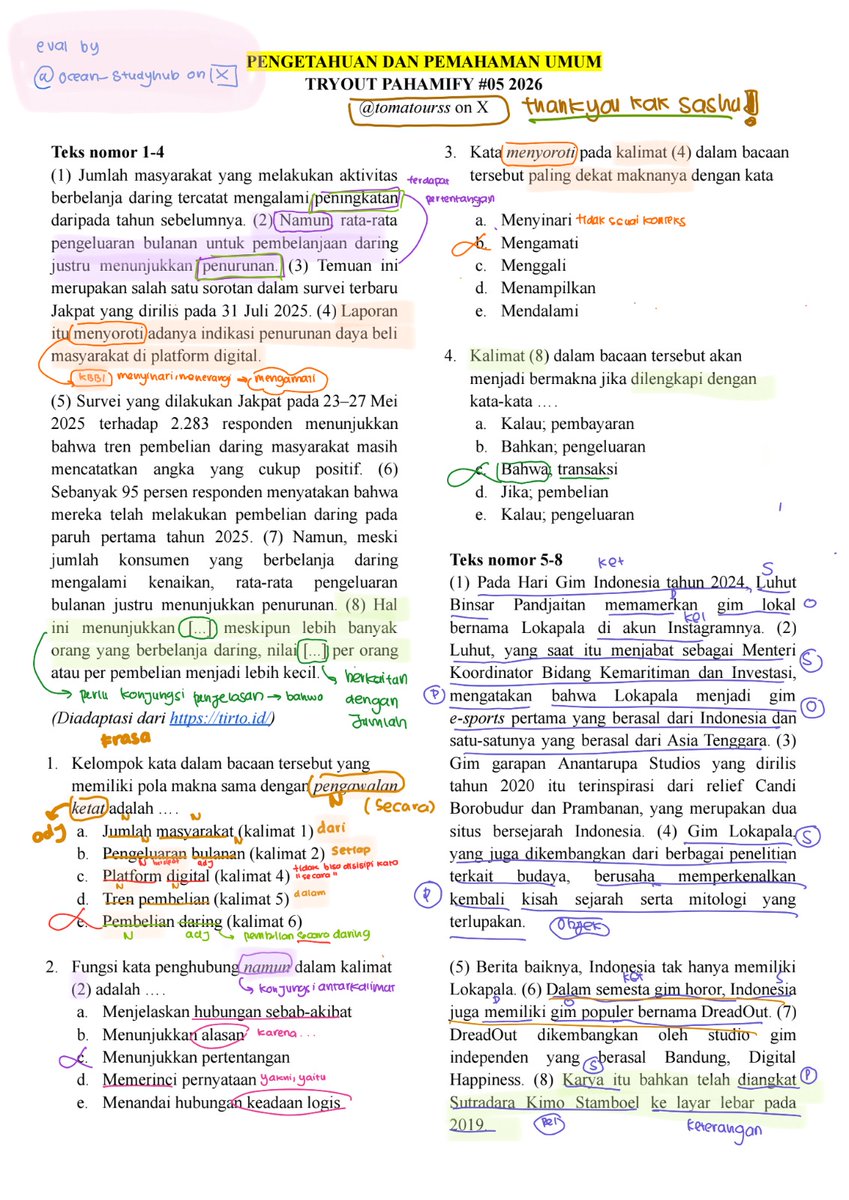 eval by
@ocean_studyhub on X
PENGETAHUAN DAN PEMAHAMAN UMUM
TRYOUT PAHAMIFY #05 2026
@tomatourss on X
thankyou kak sashu!!
Teks nomor 1-4
(1) Jumlah masyarakat yang melakukan aktivitas
berbelanja daring tercatat mengalami peningkatan
daripada tahun sebelumnya. (2) Namun, rata-rata
pengeluaran bulanan untuk pembelanjaan daring
justru menunjukkan penurunan. (3) Temuan ini
merupakan salah satu sorotan dalam survei terbaru
Jakpat yang dirilis pada 31 Juli 2025. (4) Laporan
itu menyoroti adanya indikasi penurunan daya beli
masyarakat di platform digital.
terdapat
pertentangan
KBBI menyinari, menerangi → mengamati
(5) Survei yang dilakukan Jakpat pada 23–27 Mei
2025 terhadap 2.283 responden menunjukkan
bahwa tren pembelian daring masyarakat masih
mencatatkan angka yang cukup positif. (6)
Sebanyak 95 persen responden menyatakan bahwa
mereka telah melakukan pembelian daring pada
paruh pertama tahun 2025. (7) Namun, meski
jumlah konsumen yang berbelanja daring
mengalami kenaikan, rata-rata pengeluaran
bulanan justru menunjukkan penurunan. (8) Hal
ini menunjukkan [...] meskipun lebih banyak
orang yang berbelanja daring, nilai [...] per orang
atau per pembelian menjadi lebih kecil.
→ perlu konjungsi penjelasan → bahwa
berkaitan
dengan
jumlah
(Diadaptasi dari https://tirto.id/)
frasa
1. Kelompok kata dalam bacaan tersebut yang
memiliki pola makna sama dengan pengawalan
ketat adalah ….
N
(secara)
adj
N N
a. Jumlah masyarakat (kalimat 1) dari
b. Pengeluaran bulanan (kalimat 2) setiap
N adj
c. Platform digital (kalimat 4) tidak bisa disisipi kata
"secara"
N N
d. Tren pembelian (kalimat 5) dalam
e. Pembelian daring (kalimat 6)
N adj → pembelian secara daring
2. Fungsi kata penghubung namun dalam kalimat
(2) adalah ….
→ konjungsi antarkalimat
a. Menjelaskan hubungan sebab-akibat
b. Menunjukkan alasan karena...
c. Menunjukkan pertentangan
d. Memerinci pernyataan yakni, yaitu
e. Menandai hubungan keadaan logis
3. Kata menyoroti pada kalimat (4) dalam bacaan
tersebut paling dekat maknanya dengan kata
a. Menyinari tidak sesuai konteks
b. Mengamati
c. Menggali
d. Menampilkan
e. Mendalami
4. Kalimat (8) dalam bacaan tersebut akan
menjadi bermakna jika dilengkapi dengan
kata-kata ….
a. Kalau; pembayaran
b. Bahkan; pengeluaran
c. Bahwa; transaksi
d. Jika; pembelian
e. Kalau; pengeluaran
Teks nomor 5-8
ket S
(1) Pada Hari Gim Indonesia tahun 2024, Luhut
P
Binsar Pandjaitan memamerkan gim lokal O
bernama Lokapala di akun Instagramnya. (2)
Luhut, yang saat itu menjabat sebagai Menteri S
Koordinator Bidang Kemaritiman dan Investasi,
P mengatakan bahwa Lokapala menjadi gim
e-sports pertama yang berasal dari Indonesia dan O
satu-satunya yang berasal dari Asia Tenggara. (3)
Gim garapan Anantarupa Studios yang dirilis
tahun 2020 itu terinspirasi dari relief Candi
Borobudur dan Prambanan, yang merupakan dua
situs bersejarah Indonesia. (4) Gim Lokapala, S
yang juga dikembangkan dari berbagai penelitian
terkait budaya, berusaha memperkenalkan
P kembali kisah sejarah serta mitologi yang
terlupakan. Objek
(5) Berita baiknya, Indonesia tak hanya memiliki
ket S
Lokapala. (6) Dalam semesta gim horor, Indonesia
P O
juga memiliki gim populer bernama DreadOut. (7)
DreadOut dikembangkan oleh studio gim
independen yang berasal Bandung, Digital
S
Happiness. (8) Karya itu bahkan telah diangkat P
Sutradara Kimo Stamboel ke layar lebar pada
2019. Pel keterangan